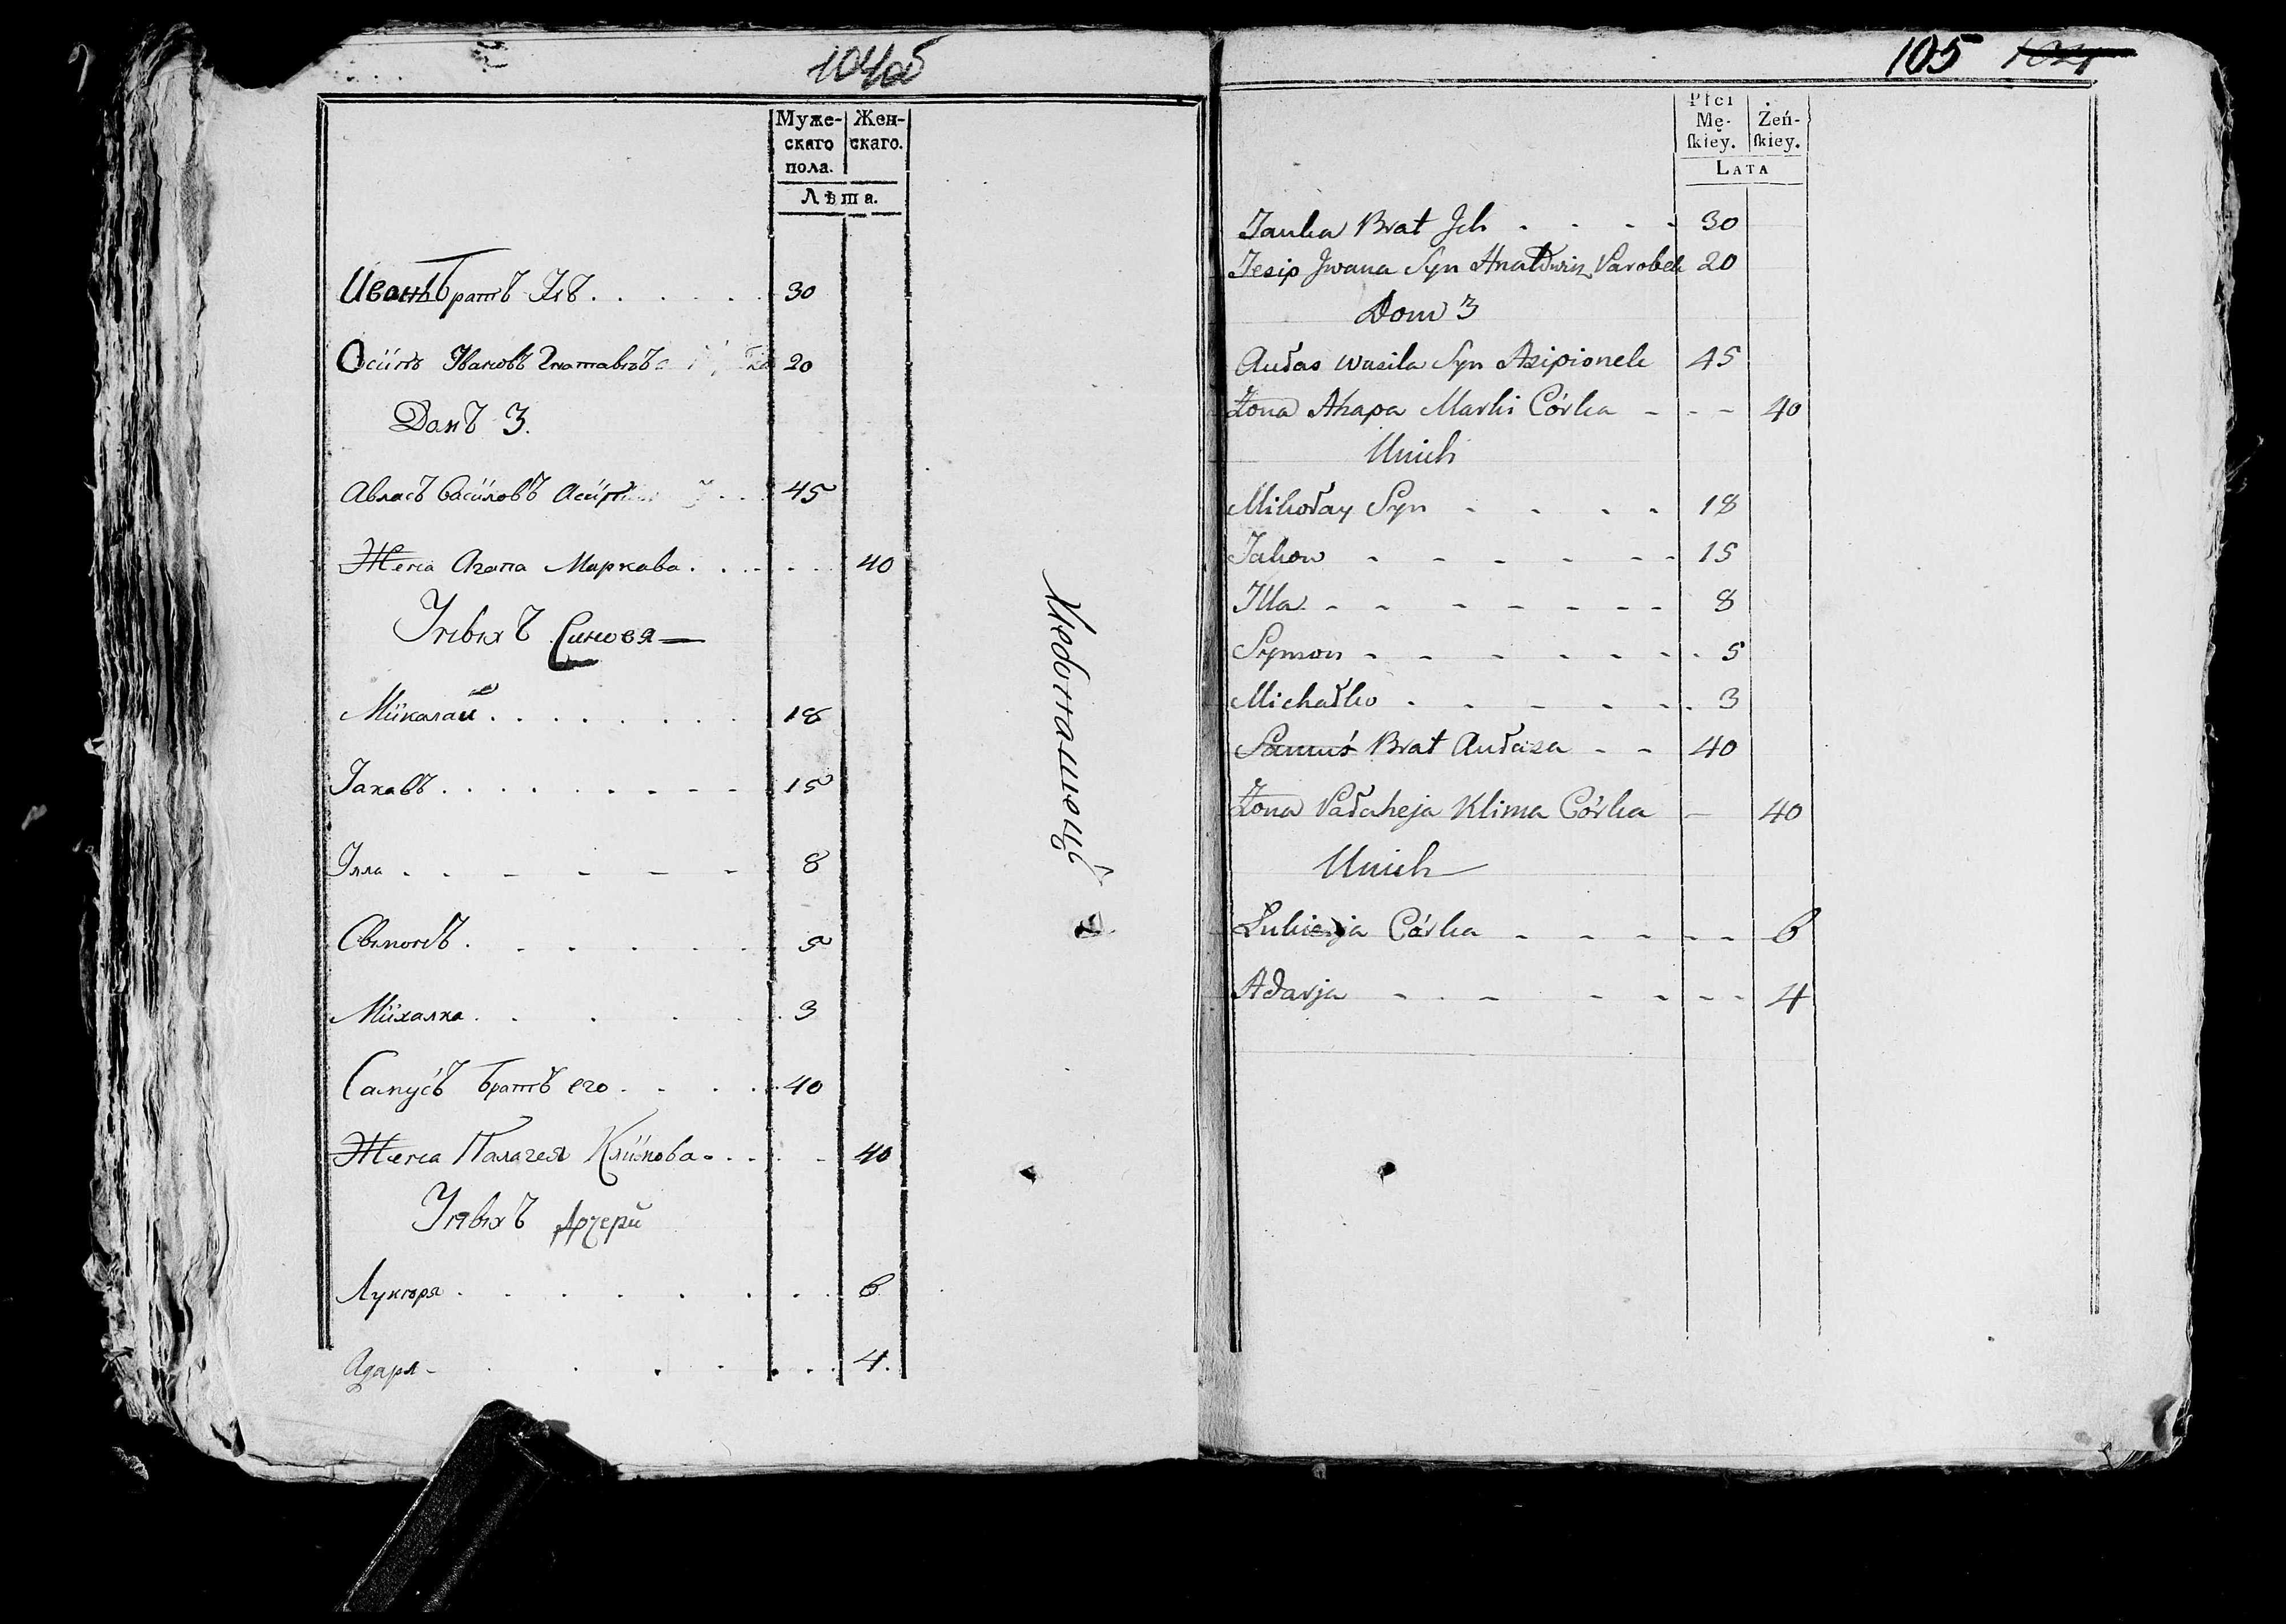 104об
Муже- Жен-
скаго скаго.
пола.
Лѣта.
Иванъ братъ Ихъ 30
Осипъ Ивановъ 20
Домъ 3.
Авласъ Василовъ 45
Жена Агапа Маркава 40
Унихъ Синовя
Миколай 18
Іаковъ 15
Илла 8
Сымонъ 5
Михалка 3
Самусь братъ его 40
Жена Палагея Климова 40
Унихъ дочери
Лукеря 6
Адаря 4.
105 104
Płci
Mę- Żeń-
ſkiey. ſkiey.
LATA
Janka Brat Ich 30
Jesip Jwana Syn Parobek 20
Dom 3
Aułas Wasila Syn Asipionek 45
Żona Ahapa Marki Córka 40
Unich
Mikołay Syn 18
Jakow 15
Illa 8
Symon 5
Michałko 3
Samuś Brat Aułasa 40
Żona Pałaheja Klima Córka 40
Unich
Lukierja Córka 6
Adarja 4